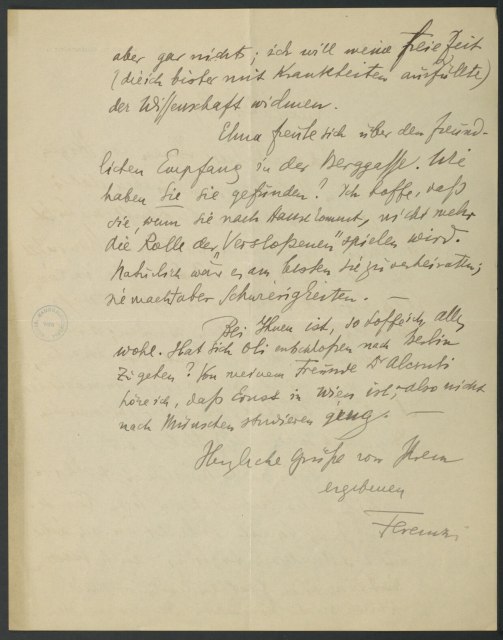 aber gar nicht; ich will meine freie Zeit
(die ich bisher mit Krankheiten ausfüllte)
der Wissenschaft widmen.
Elma freute sich über den freund-
lichen Empfang in der Berggasse. Wie
haben Sie sie gefunden? Ich hoffe, daß
sie, wenn sie nach Hause kommt, nicht mehr
die Rolle der „Verstoßenen" spielen wird.
Natürlich wär es am besten sie zu verheiraten;
sie macht aber Schwierigkeiten. —
Bei Ihnen ist, so hoffe ich, alles
wohl. Hat sich Oli entschloßen nach Berlin
zu gehen? Von meinem Freunde Dr
höre ich, daß Ernst in Wien ist, also nicht
nach München studieren ging. —
Herzliche Grüße von Ihrem
ergebenen
Ferenczi